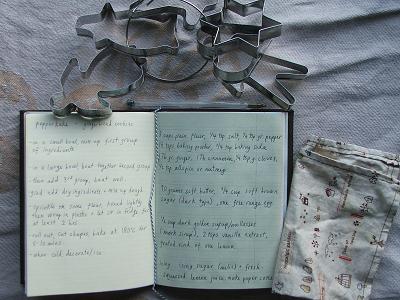 pepperkaka gingerbread cookies
-in a small bowl, mix up first group
of ingredients
-in a large bowl, beat together second group
-then add 3rd group, beat well
-add dry ingredients + mix up dough
-sprinkle on some flour, knead lightly
then wrap in plastic + let sit in fridge for
at least 2 hrs
-roll out, cut shapes, bake at 180°C for
8-10 mins
-when cold decorate/ice
3 cups plain flour, 1/4 tsp salt, 1/4 tsp gr. pepper
1/2 tsp baking powder, 1/2 tsp baking soda
gr. ginger, cinnamon, gr. cloves,
1/4 tsp allspice or nutmeg
grams soft butter, 1/4 cup soft brown
sugar (dark type), one free range egg
1/2 cup dark golden syrup/molasses
(mørk sirup), 2 tsps vanilla extract,
grated rind of one lemon
icing sugar (sifted) + fresh
squeezed lemon juice, make paper cone